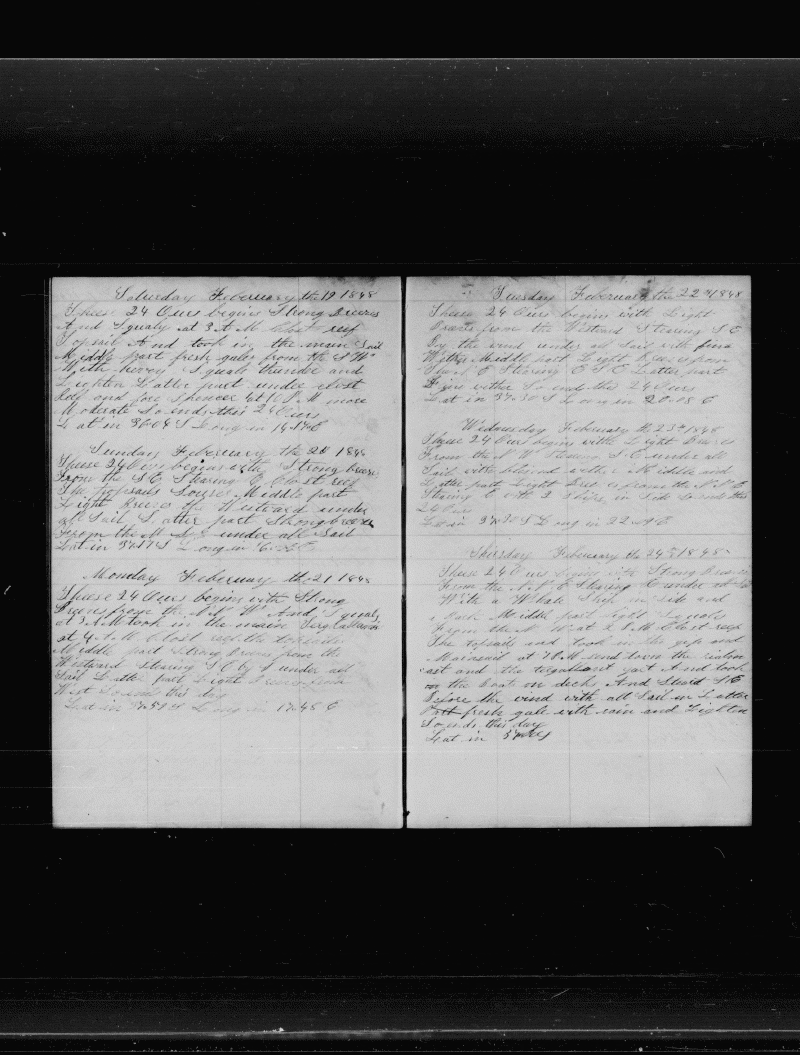 Saturday Feberuary the 19 1848
These 24 Ours begins Strong Breezes
And Squaly at 3 A M Clost reef
Topsail And took in the main Sail
Middle part fresh gales from the
With hevey Squals thunder and
Lighten Latter part under clost
Reef and fore Spencer at 10 P M more
Moderate So ends this 24 Ours
Lat in 36=04 S Long in
Sunday Feberuary the 20 1848
These 24 Ours begins with Strong breeze
From the S E Staring E Clost reef
The topsails Middle part
Light Breses the Westward under
all Sail Latter part Strong breeze
From the under all Sail
Lat in 37=17 S Long in
Monday Feberuary the 21 1848
These 24 Ours begin with Strong
Breses from the N W And Squaly
at 3 A M took in the main
at 4 A M Clost reef the topsails
Middle part Strong Breses from the
Westward Staring S E by E under all
Sail Latter part Light Breses from
West So ends this day
Lat in 37=51 S Long in 17=48 E
Tuesday Feberuary the 22nd 1848
These 24 Ours begins with Light
Breses from the Westard Staring S E
By the wind under all Sail with fine
Wether Middle part Light Breses from
Staring E S E Latter part
Fine wether So ends the 24 Ours
Lat in 37=30 S Long in 20=08 E
Wednesday Feberuary the 23rd 1848
These 24 Ours begins with Light Breses
From the N W Staring S E under all
Sail with wether Middle and
Latter part Light Breses from the N N E
Staring E 2 Ships in Side So ends this
24 Ours
Lat in 37=30 S Long in 22
Thursday Feberuary the 24th 1848
These 24 Ours begins with Strong Breses
From the N N E Staring E under all
With a Whale Ship in Side and
a Bark Middle part light Squals
From the N W at 2 A M Clost reef
The topsails and took in the jib and
Mainsail at 7 A M send down the
and the yait And took
on the boat on decks And Steard S E
Before the wind with all Sail in Latter
Part fresh gale with rain and Lighten
So ends this day
Lat in